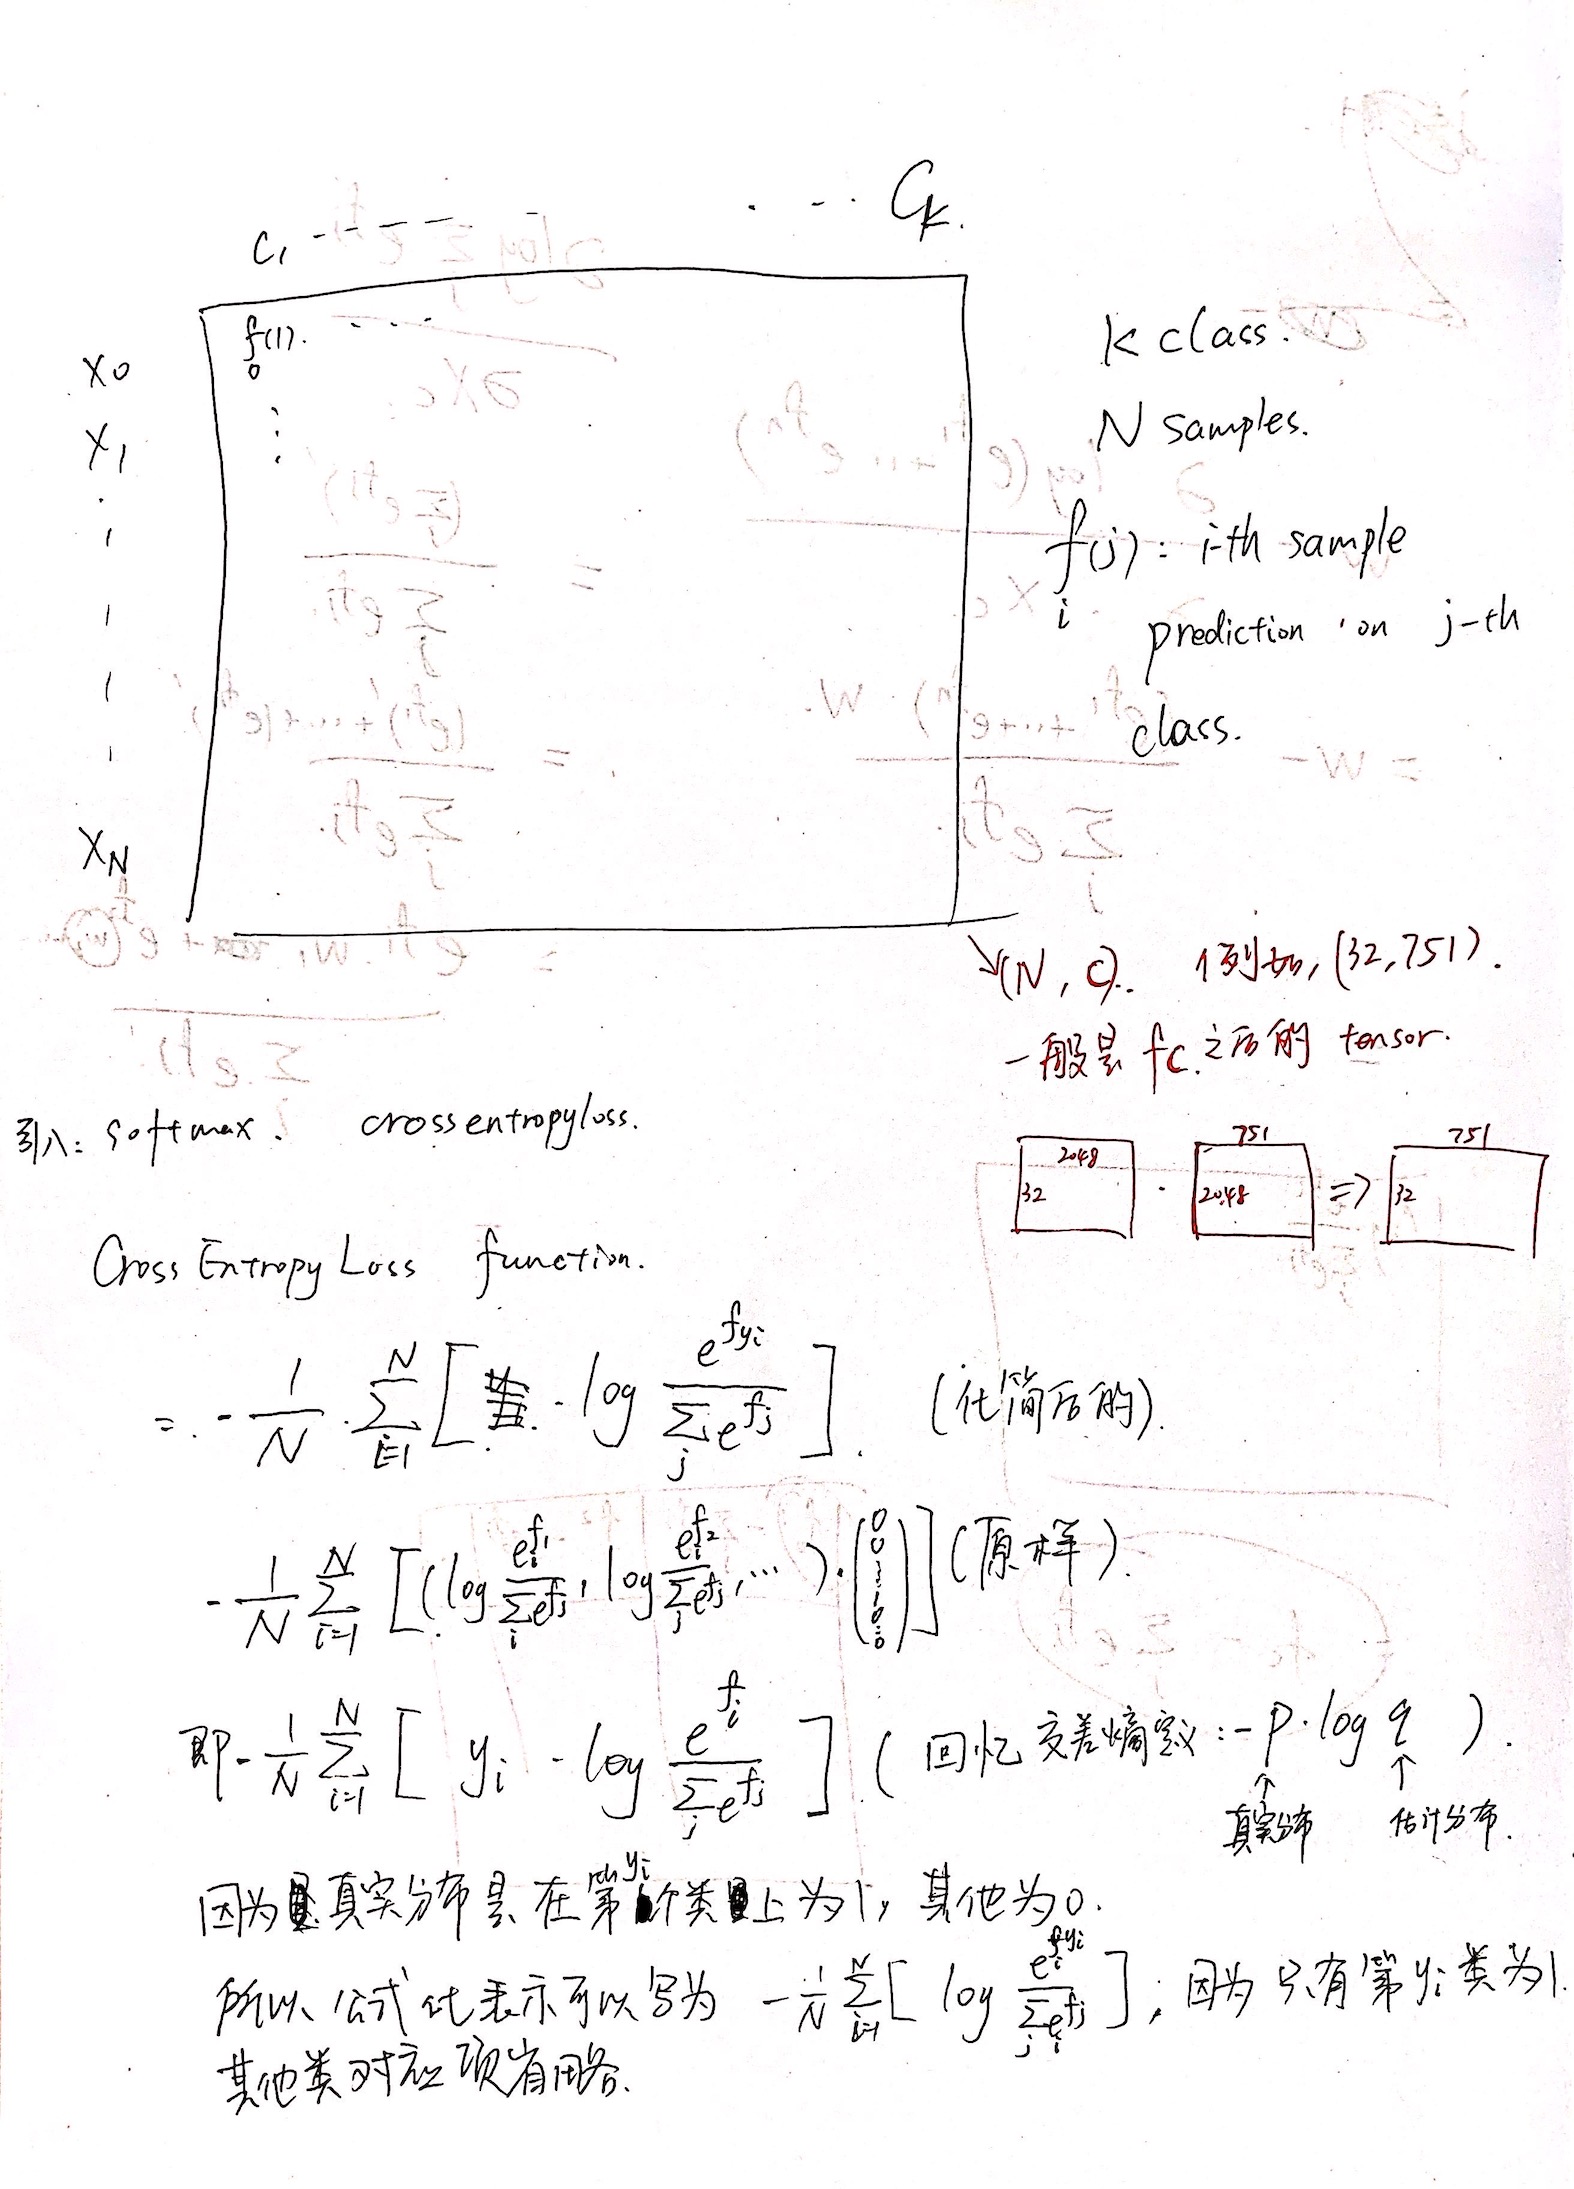 C1 ---- · -- · Ck.
f(1). ...
0
X0
X1
XN
K class.
N samples.
f(j): i-th sample
i
prediction on j-th
class.
(N, C). 例如, (32, 751).
一般是 fc 之后的 tensor.
引入: softmax. crossentropyloss.
2048 751 751
32 · 2048 => 32
Cross Entropy Loss function.
= -1/N · Σ_{i=1}^{N} [ · log e^{fyi} / Σ_j e^{fj} ]. (化简后的).
-1/N Σ_{i=1}^{N} [(log e^{f1}_i / Σ_i e^{fj}, log e^{f2}_i / Σ_j e^{fj}, ...) · (0 0 ⋮ 1 ⋮ 0 ⋮ 0)] (原样).
即 -1/N Σ_{i=1}^{N} [ yi · log e^{f_i} / Σ_j e^{fj} ] (回忆交差熵定义: -p·log q ).
↑ ↑
真实分布 估计分布.
因为真实分布是在第yi个类上为1, 其他为0.
所以公式化表示可以写为 -1/N Σ_{i=1}^{N} [ log e^{fyi}_i / Σ_j e^{fj}_i ], 因为只有第yi类为1.
其他类对应项省略.